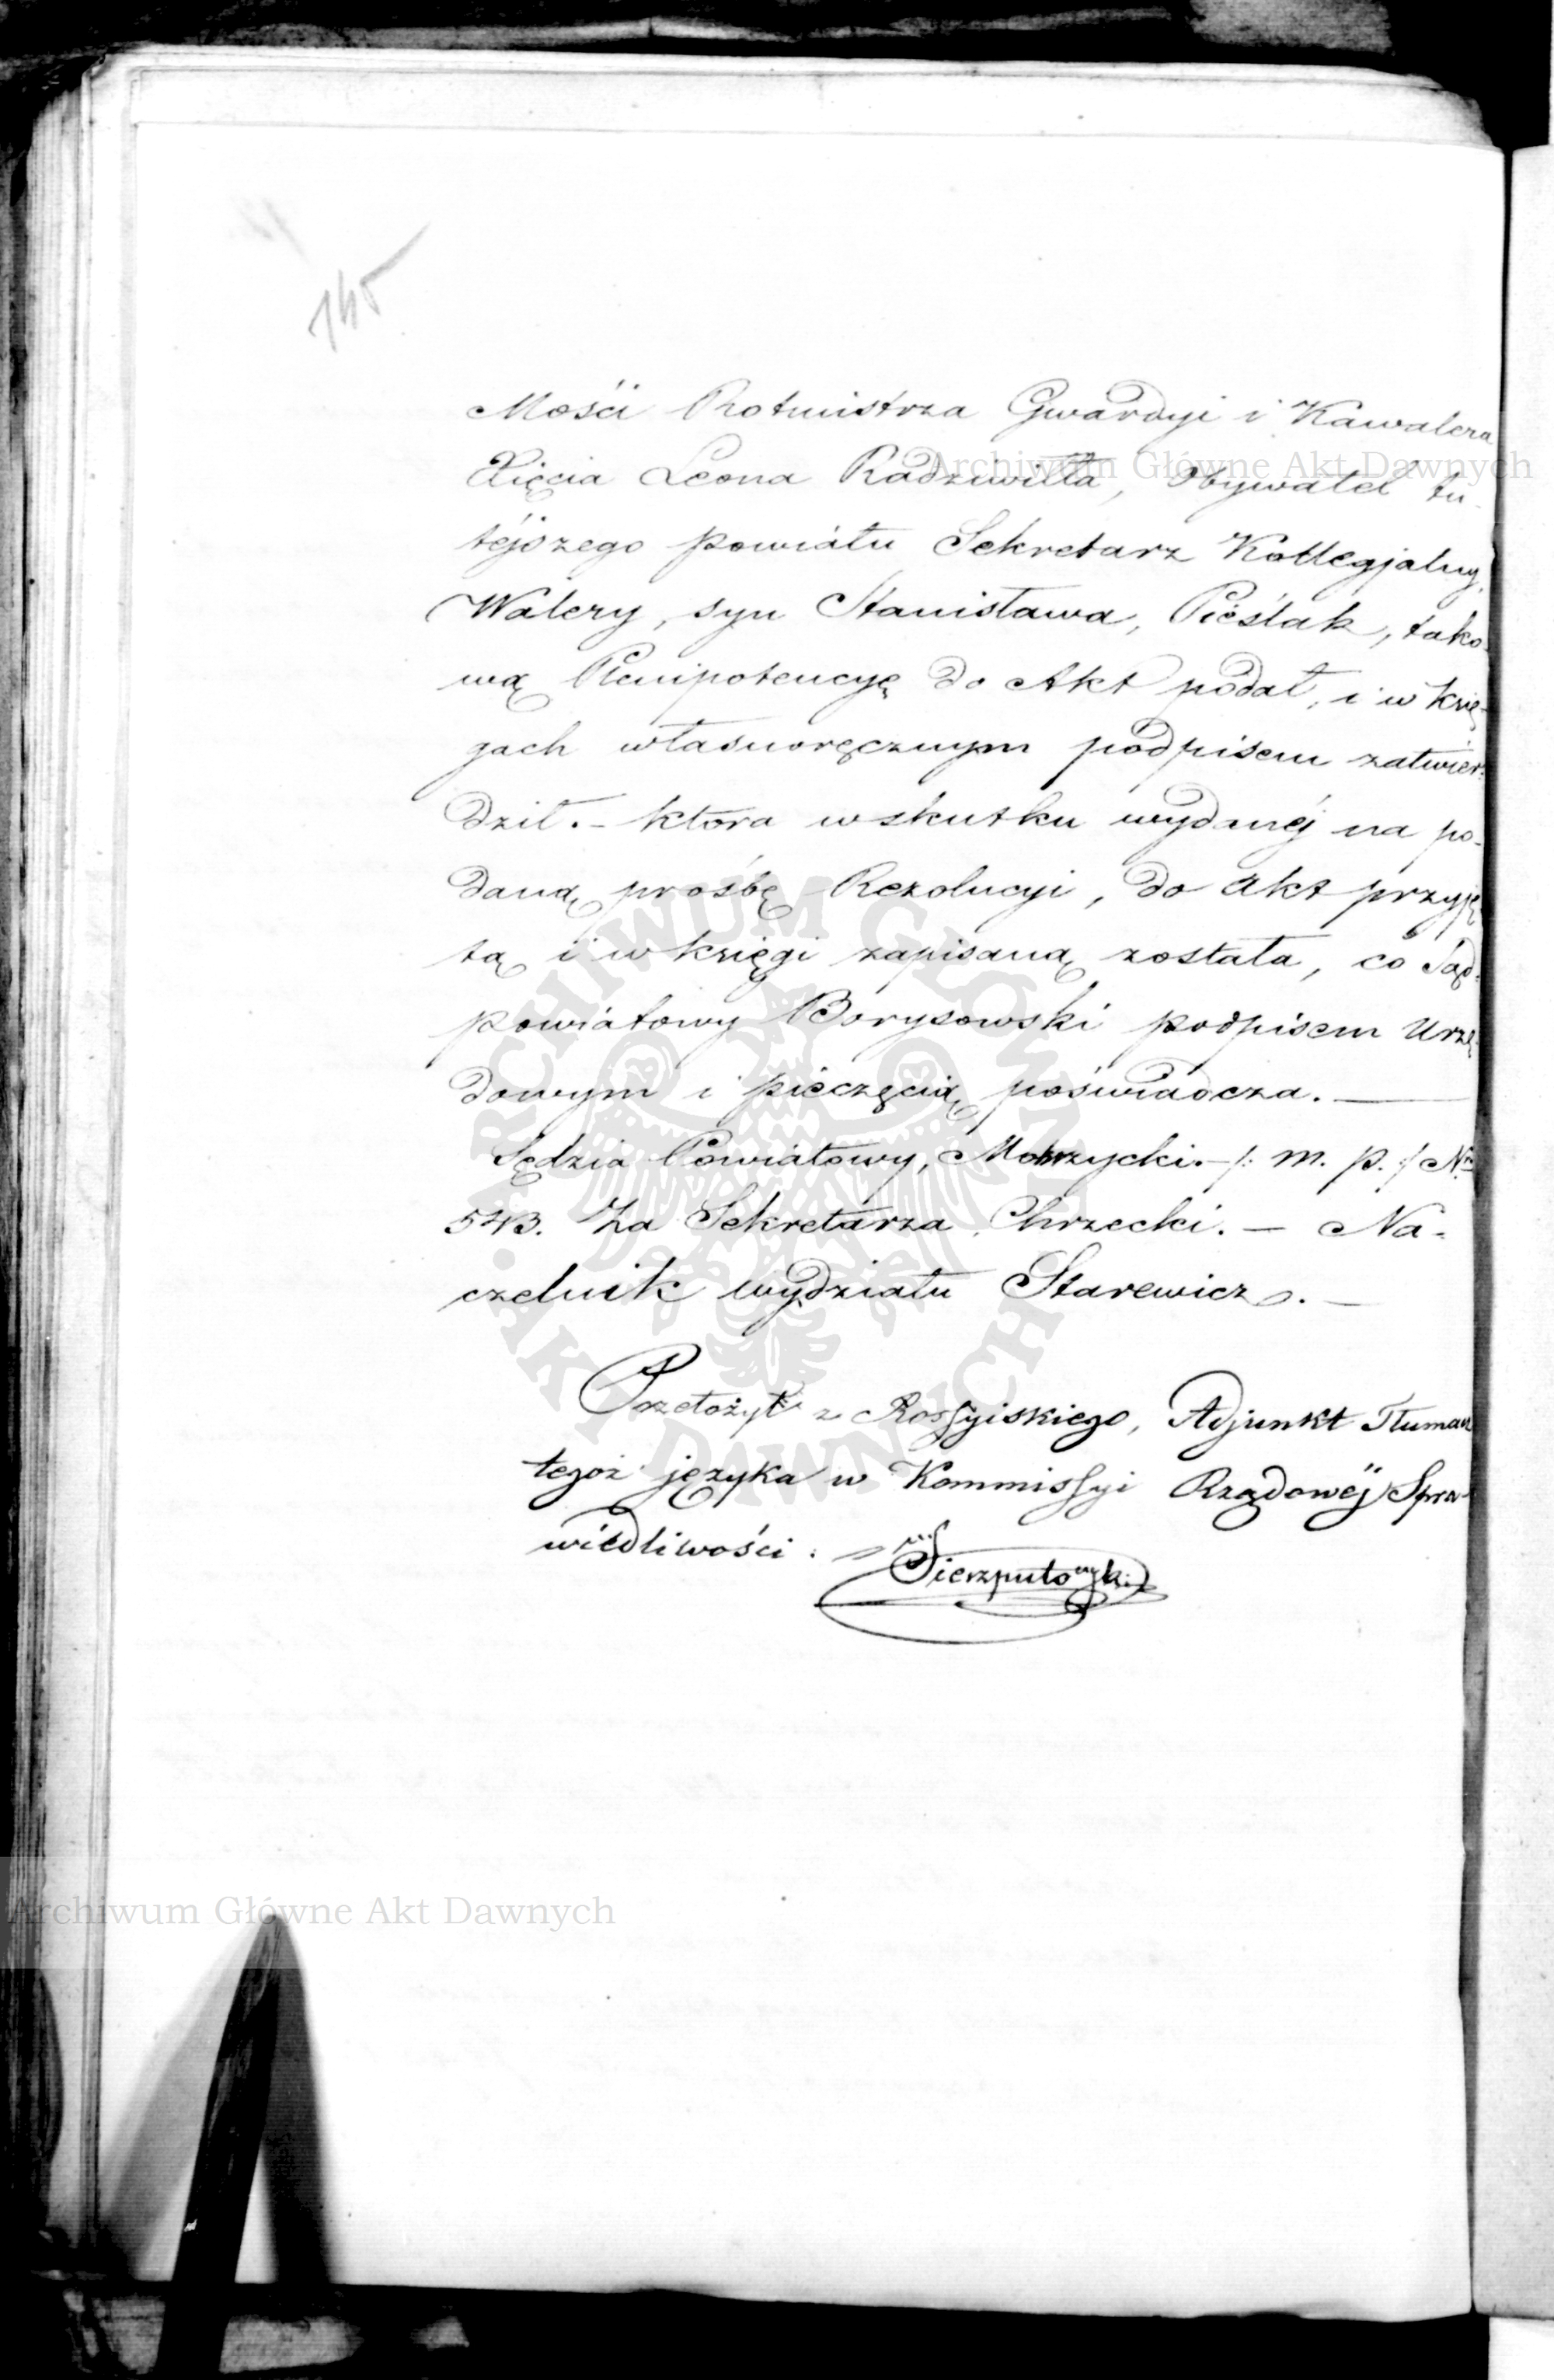 145
Mości Rotmistrza Gwardyi i Kawalera
Xięcia Leona Radziwiłła, Obywatel tu-
téjszego powiatu Sekretarz Kollegjalny,
Walery, syn Stanisława, Pieślak, tako-
wą Plenipotencyę do Akt podał, i w księ-
gach własnoręcznym podpisem zatwier-
dził. – która wskutku wydanéj na po-
daną prośbę Rezolucyi, do akt przyję
tą i w księgi zapisaną została, co Sąd
powiatowy Borysowski podpisem Urzę
dowym i pieczęcią poświadcza. —
Sędzia Powiatowy, /: m. p. :/ Nr
543. Za Sekretarza Chrzecki. – Na-
czelnik wydziału Starewicz. –
Przełożył z Rossyiskiego, Adjunkt Tłumacz
tegoż języka w Kommissyi Rządowéj Spra-
wiedliwości.
Sierzputowski
Archiwum Główne Akt Dawnych
ARCHIWUM GŁÓWNE
AKT DAWNYCH
Archiwum Główne Akt Dawnych